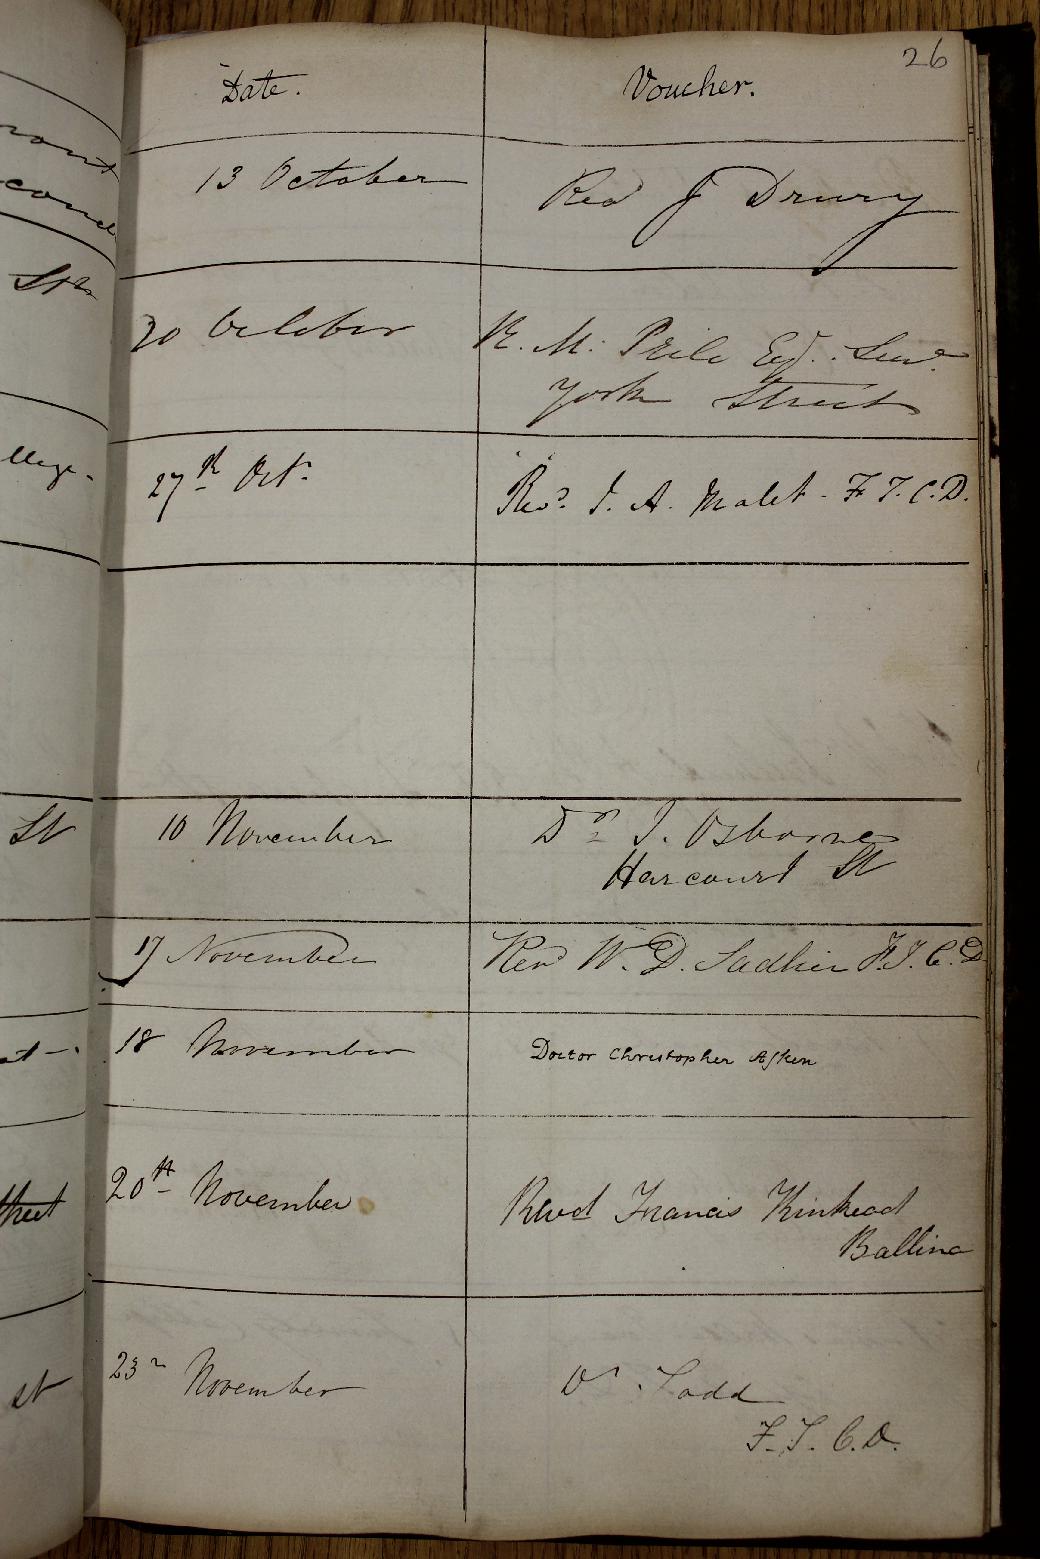 26
Date. Voucher.
13 October Revd J Drury
20 October R. M. Esq.
York Street
27th Oct. Revd. J. A. Malet. F. T. C. D.
10 November Dr J. Osborne
Harcourt St
17 November Revd W. D. Sadleir F. T. C. D
18 November Doctor Christopher
20th November Revd Francis Kinkead
Ballina
23 November Dr. Todd
F. T. C. D.
St
llege.
St
st